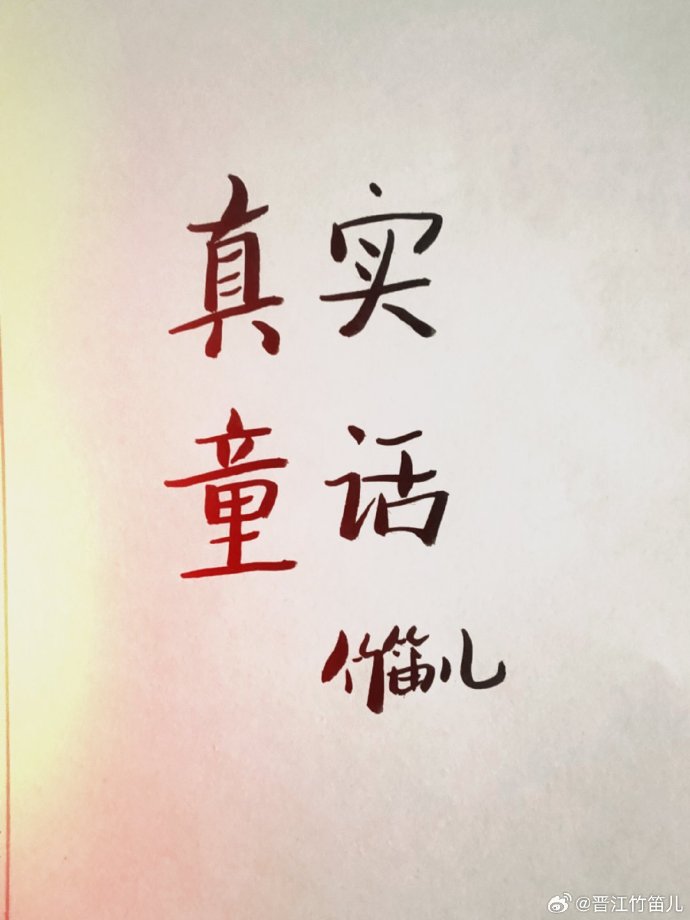 真实
童话
竹笛儿
@晋江竹笛儿